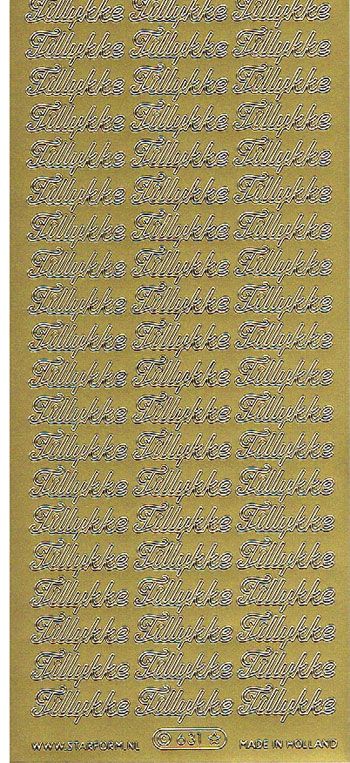 Tillykke Tillykke Tillykke
Tillykke Tillykke Tillykke
Tillykke Tillykke Tillykke
Tillykke Tillykke Tillykke
Tillykke Tillykke Tillykke
Tillykke Tillykke Tillykke
Tillykke Tillykke Tillykke
Tillykke Tillykke Tillykke
Tillykke Tillykke Tillykke
Tillykke Tillykke Tillykke
Tillykke Tillykke Tillykke
Tillykke Tillykke Tillykke
Tillykke Tillykke Tillykke
Tillykke Tillykke Tillykke
Tillykke Tillykke Tillykke
Tillykke Tillykke Tillykke
Tillykke Tillykke Tillykke
Tillykke Tillykke Tillykke
Tillykke Tillykke Tillykke
Tillykke Tillykke Tillykke
WWW.STARFORM.NL © 631 ☆ MADE IN HOLLAND